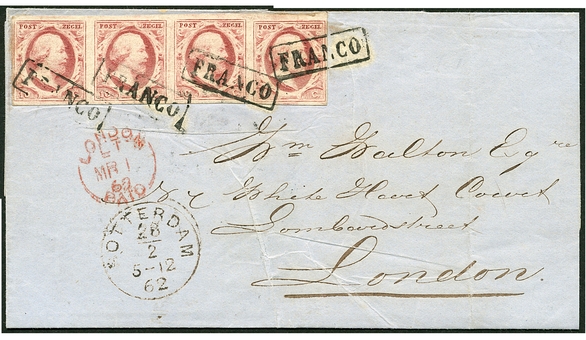 POST ZEGEL POST ZEGEL POST ZEGEL POST ZEGEL
FRANCO FRANCO FRANCO FRANCO
LONDON
MR 1
62
PAID
ROTTERDAM
28
2
5-12
62
Wm Walton Eqre
White Hart Court
Lombardstreet
London.